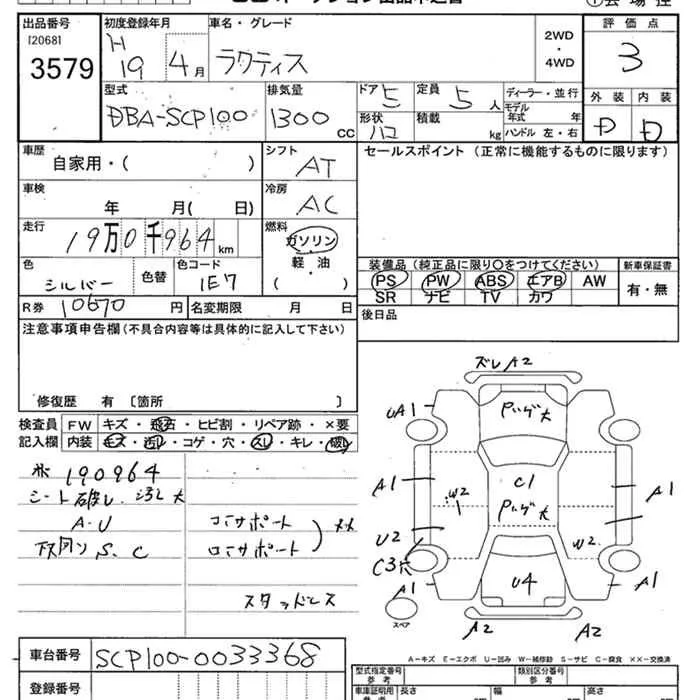 出品番号 初度登録年月 車名・グレード 評価点
[2068]
3579
H 19 4月 ラクティス 2WD・4WD 3
型式 排気量 ドア 5 定員 5人 ディーラー・並行 外装 内装
DBA-SCP100 1300cc 形状 ハコ 積載 kg モデル年式 年 D D
ハンドル 左・右
車歴 シフト セールスポイント (正常に機能するものに限ります)
自家用・( ) AT
車検 冷房
年 月( 日) AC
走行 燃料
19万0千964km ガソリン・軽・油
( )
色 色替 色コード 装備品 (純正品に限り○をつけてください) 新車保証書
シルバー 1E7 PS PW ABS エアB AW 有・無
SR ナビ TV カワ
R券 10670円 名変期限 月 日 後日品
注意事項申告欄 (不具合内容等は具体的に記入して下さい)
修復歴 有 [箇所 ]
検査員 FW キズ・飛石・ヒビ割・リペア跡・×要
記入欄 内装 キズ・汚れ・コゲ・穴・スレ・キレ・破れ
190964
シート破レ 汚レ 大
A・U コアサポート
下回り S、C ロアサポート ××
スタッドレス
ズレA2
UA1 Pハゲ大
A1 W2 C1 A1
Pハゲ大
U2 W2
C3穴
A1 U4 A1
スペア A2 A2
A-キズ E-エクボ U-凹み W-補修跡 S-サビ C-腐食 ××-交換済
車台番号 SCP100-0033368
登録番号
型式指定番号 類別区分番号
参考 参考
車庫証明用 長さ 幅 高さ